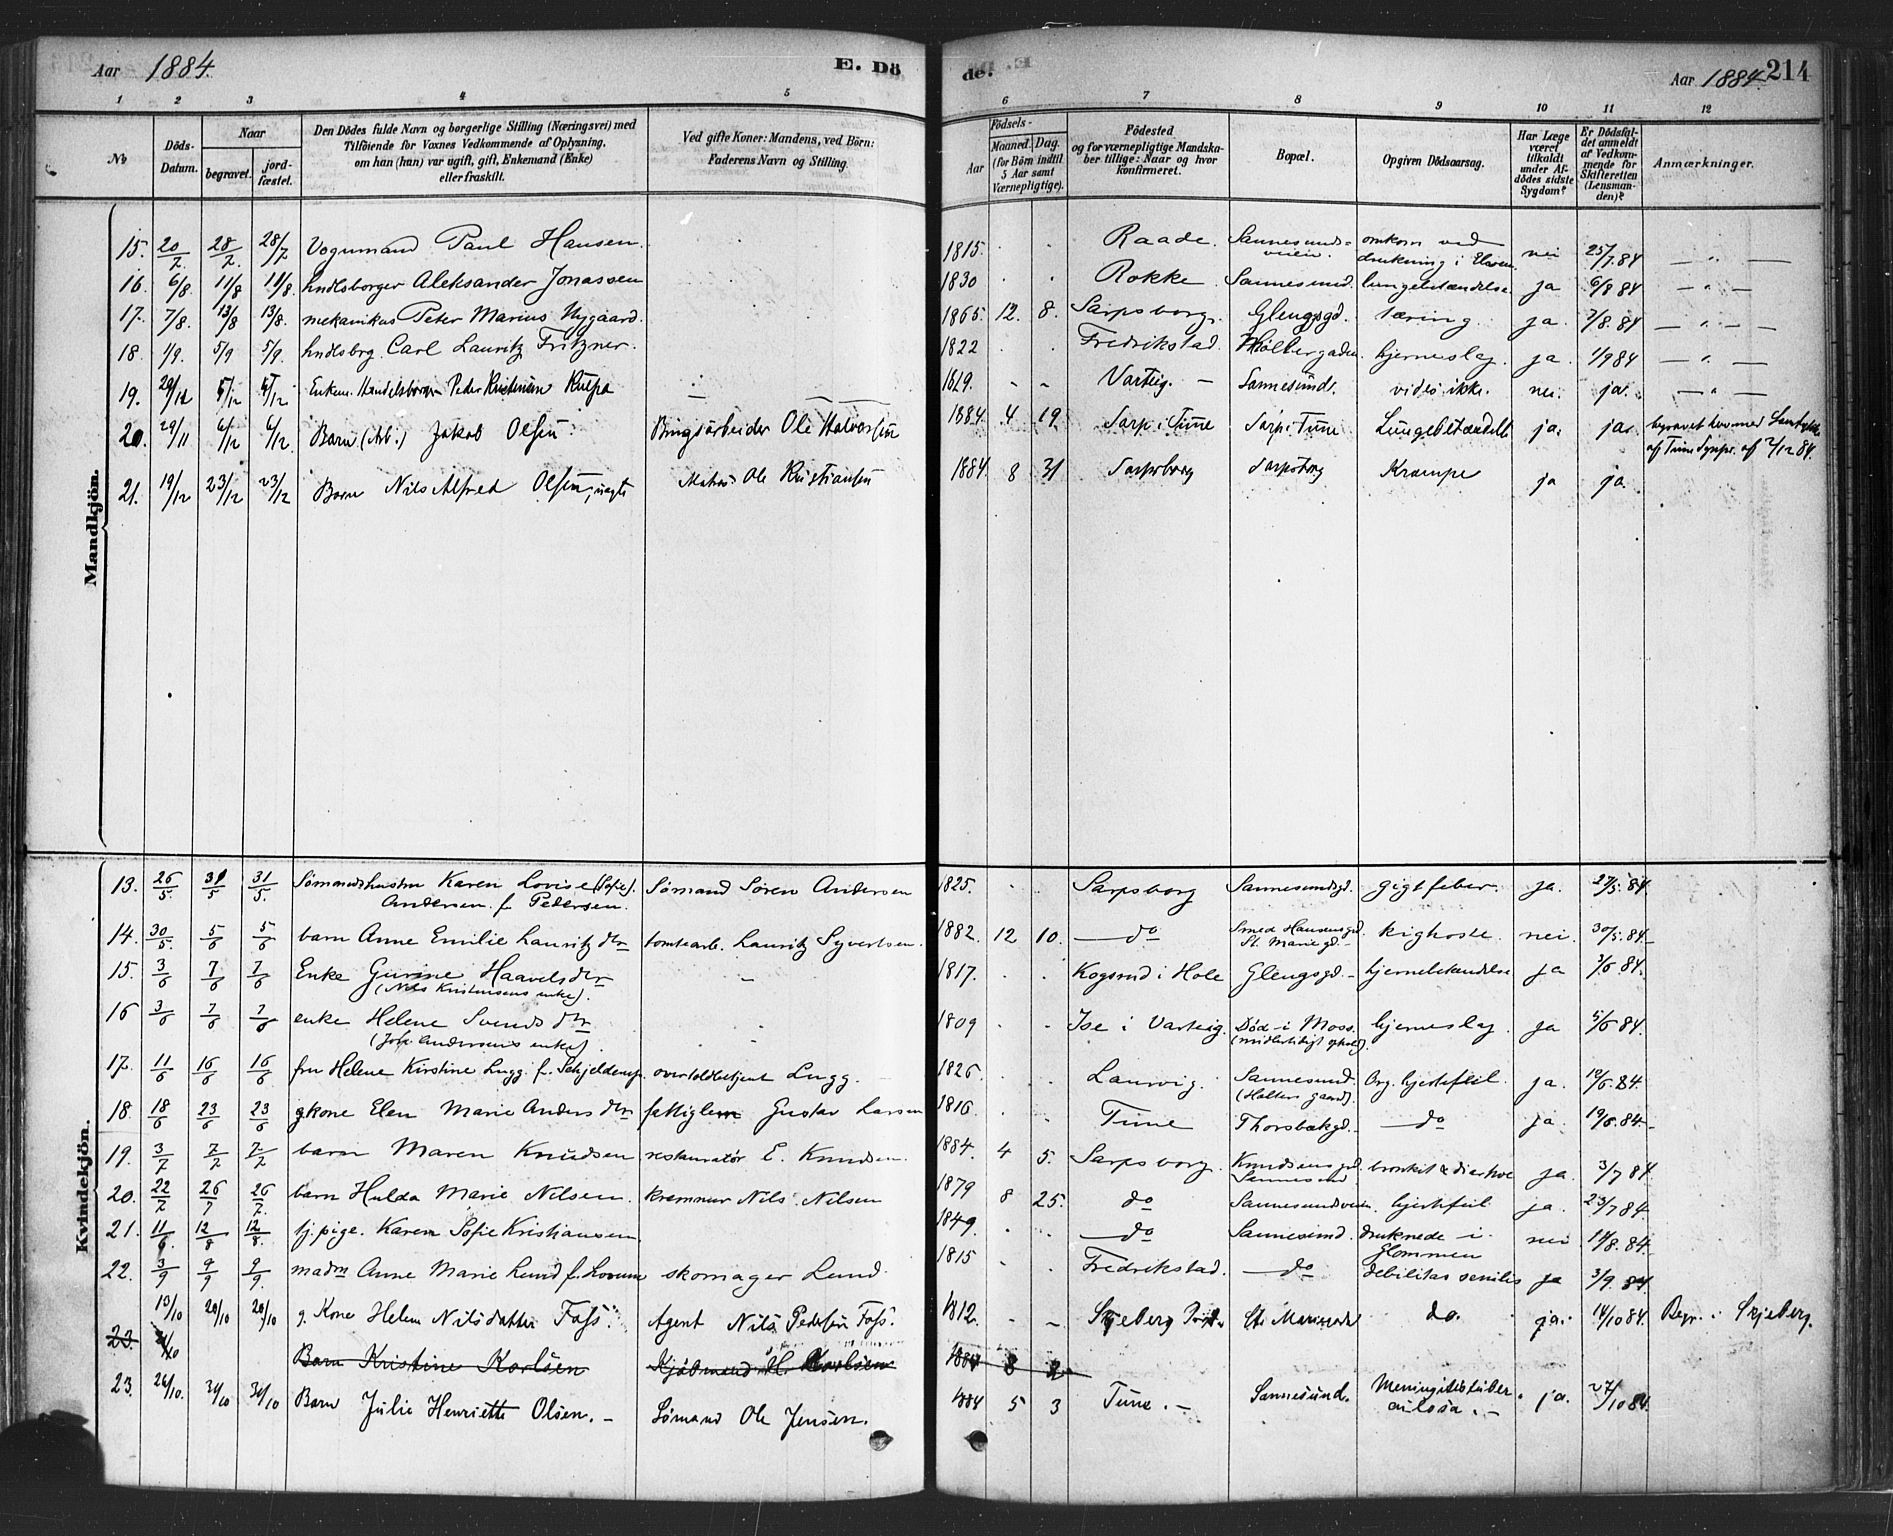 Aar 1884. E. Dö
de. Aar 1884. 214
1 2 3 4 5 6 7 8 9 10 11 12
No
Döds-
Datum.
Naar
begravet.
jord-
fæstet.
Den Dödes fulde Navn og borgerlige Stilling (Næringsvei) med
Tilföiende for Voxnes Vedkommende af Oplysning,
om han (hun) var ugift, gift, Enkemand (Enke)
eller fraskilt.
Ved gifte Koner: Mandens, ved Börn:
Faderens Navn og Stilling.
Födsels-
Aar
Maaned. Dag.
(for Börn indtil
5 Aar samt
Værnepligtige).
Födested
og for værnepligtige Mandska-
ber tillige: Naar og hvor
konfirmeret.
Bopæl.
Opgiven Dödsaarsag.
Har Læge
været
tilkaldt
under Af-
dödes sidste
Sygdom?
Er Dödsfal-
det anmeldt
af Vedkom-
mende for
Skifteretten
(Lensman-
den)?
Anmærkninger.
Mandkjön.
15. 20/7 28/7 28/7 Vognmand Paul Hansen. 1815. Raade. Sannesunds-veien. omkom ved drukning i Elven. nei 25/7.84 — " —
16. 6/8. 11/8 11/8. hndlsborger Aleksander Jonassen 1830 Rokke Sannesund. lungebetændelse. ja 6/8 84 — " —
17. 7/8. 13/8 13/8. mekanikus Peter Marius Nygaard. 1865. 12. 8. Sarpsborg. Glengsgd. tæring. ja. 7/8. 84 — " —
18. 1/9. 5/9 5/9. hndlsbrg. Carl Lauritz Fritzner. 1822 Fredrikstad. hjerneslag. ja. 1/9 84 — " —
19. Enkem. Handelsborger Peder Kristensen 1819. Varteig. — Sannesund. vides ikke. nei. ja. — " —
20. 29/11 6/12 6/12. Barn (Arb.) Jakob Olsen. Brugsarbeider Ole Halvorsen 1884. 4 19. Sarp i Tune Sarp i Tune Lungebetændelse ja. ja. begravet her med Samtykke
af Tune Sgnpr. af 2/12 84.
21. 19/12 23/12 23/12 Barn Nils Alfred Olsen, uægte Matros Ole Kristiansen 1884. 8 31 Sarpsborg Sarpsborg Krampe ja ja.
Kvindekjön.
13. 26/5. 31/5 31/5. Sömandshustru Karen Lovise (Sofie). Andersen f. Pedersen. Sømand Søren Andersen 1825. Sarpsborg Sannesundsgd. gigtfeber. ja. 27/5. 84.
14. 30/5. 5/6 5/6 barn Anne Emilie Lauritzdtr tomtearb. Lauritz Syvertsen. 1882. 12 10. do Smed Hansensgd. St. Mariegd. kighoste. nei. 30/5. 84.
15. 3/6 7/6 7/6 Enke Gurine Haavelsdtr (Nils Kristensens enke). " 1817. i Hole Glengsgd. hjernebetændelse ja 3/6 84.
16 3/6 7/6 7/6 enke Helene Svendsdtr (Joh. Andersens enke). 1809 Ise i Varteig. Död i Moss. (midlertidigt ophold). hjerneslag ja 5/6 84.
17. 11/6 16/6 16/6 fru Helene Kirstine Lugg f. Schjelderup. overtoldbetjent Lugg. 1826. Laurvig. Sannesund. (Halters gaard). Org. hjertefeil. ja. 12/6. 84.
18. 18/6 23/6 23/6 gkone Elen Marie Andersdtr fattiglem Gustav Larsen 1816. Tune Thorsbækgd. do ja. 19/6. 84.
19. 3/7 7/7 7/7 barn Maren Knudsen restauratør E. Knudsen. 1884. 4 5. Sarpsborg. Knudsensgd. Sannesund bronkit & diarrhoe ja. 3/7 84
20. 22/7 26/7 26/7. barn Hulda Marie Nilsen. kræmmer Nils Nilsen 1879 8 25. do Sannesundveien. hjertefeil ja. 23/7 84.
21. 11/6. 12/8 12/8. tj.pige. Karen Sofie Kristiansen 1849. do Sannesund. druknede i Glommen nei 14/8. 84.
22. 3/9 9/9 9/9. madm Anne Marie Lund f. skomager Lund. 1815 Fredrikstad. do debilitas senilis ja 3/9. 84
13/10 20/10 20/10 g. Kone Helene Nilsdatter Foss. Agent Nils Pedersen Foss. 1812. Skjeberg St. Mariegade do. ja. 14/10 84. Begr. i Skjeberg.
23. Barn Kristine Karlsen Kjøbmand H. Karlsen 1884 8 2
23. 26/10. 31/10 31/10 Barn Julie Henriette Olsen. — Sømand Ole Jensen. 1884 5 3 Tune. — Sannesund. Meningitis tuberculosa. — ja. 27/10 84.